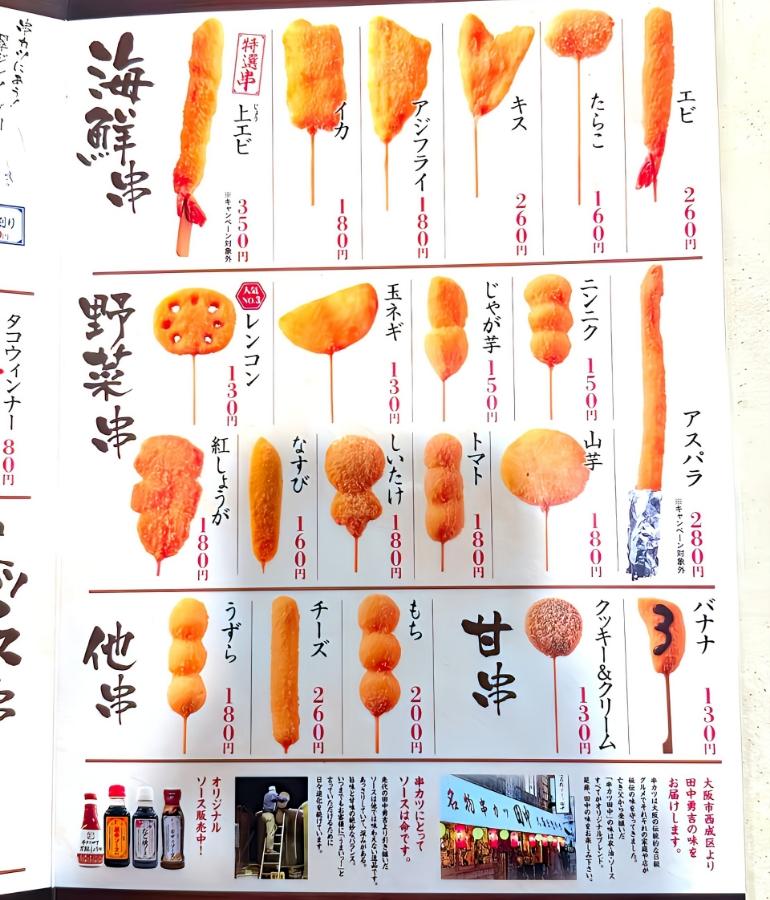 海鮮串
特選串
上エビ
じょう
350円
※キャンペーン対象外
イカ
180円
アジフライ
180円
キス
260円
たらこ
160円
エビ
260円
野菜串
人気
NO.3
レンコン
130円
玉ネギ
130円
じゃが芋
150円
ニンニク
150円
アスパラ
280円
※キャンペーン対象外
紅しょうが
180円
なすび
160円
しいたけ
180円
トマト
180円
山芋
180円
他串
うずら
180円
チーズ
260円
もち
200円
甘串
クッキー&クリーム
130円
バナナ
130円
タコウィンナー
80円
大阪市西成区より
田中勇吉の味を
お届けします。
串カツは大阪の伝統的な日級
グルメで
名物串カツ田中
串カツにとって
ソースは命です。
オリジナル
ソース販売中!